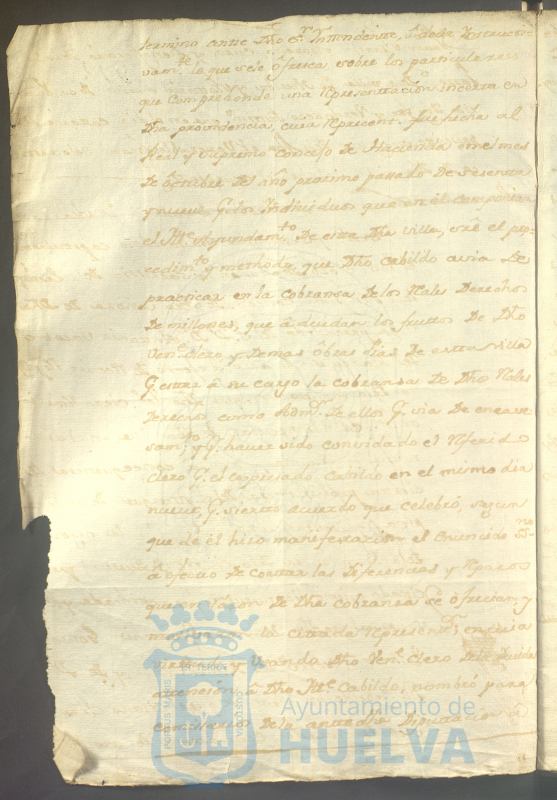 termino entre Dho Sr. Intendente,
lo que se le ofresca sobre los particulares
que comprehende una Representacion incerta en
Dha providencia, cuia Represent. fue hecha al
Real y supremo Concejo de Hacienda en el mes
de Octubre del año proximo passado de sesenta
y nueve Ps. los Yndividuos que en él componian
el Ille. Ayuntdamto. de esta Dha villa, sre el pro-
cedimto. y methodo, que Dho Cabildo avia de
practicar en la cobransa de los Rales Derechos
de millones, que adeudan los fruttos de Dho
Vene. Clero, y demas Obras Pias de estta villa
P. estar â su cargo la cobransa de Dho Rales
Derechos como Admr. de ellos P. via de encave-
samto. y P. haver sido convidado el Referido
Clero P. el expresado Cabildo en el mismo dia
nueve, P. sierto acuerdo que celebró, segun
que de él hiso manifestazion el Enunciado
â efecto de cortar las Diferencias y Reparos
que en rason de Dha cobransa se ofrecian, y
la citada Representn, en cuia
y usando Dho Vene. Clero de la devida
atencion â Dho Ille. Cabildo, nombró para
de la antedha Diputacion â
Ayuntamiento de
HUELVA